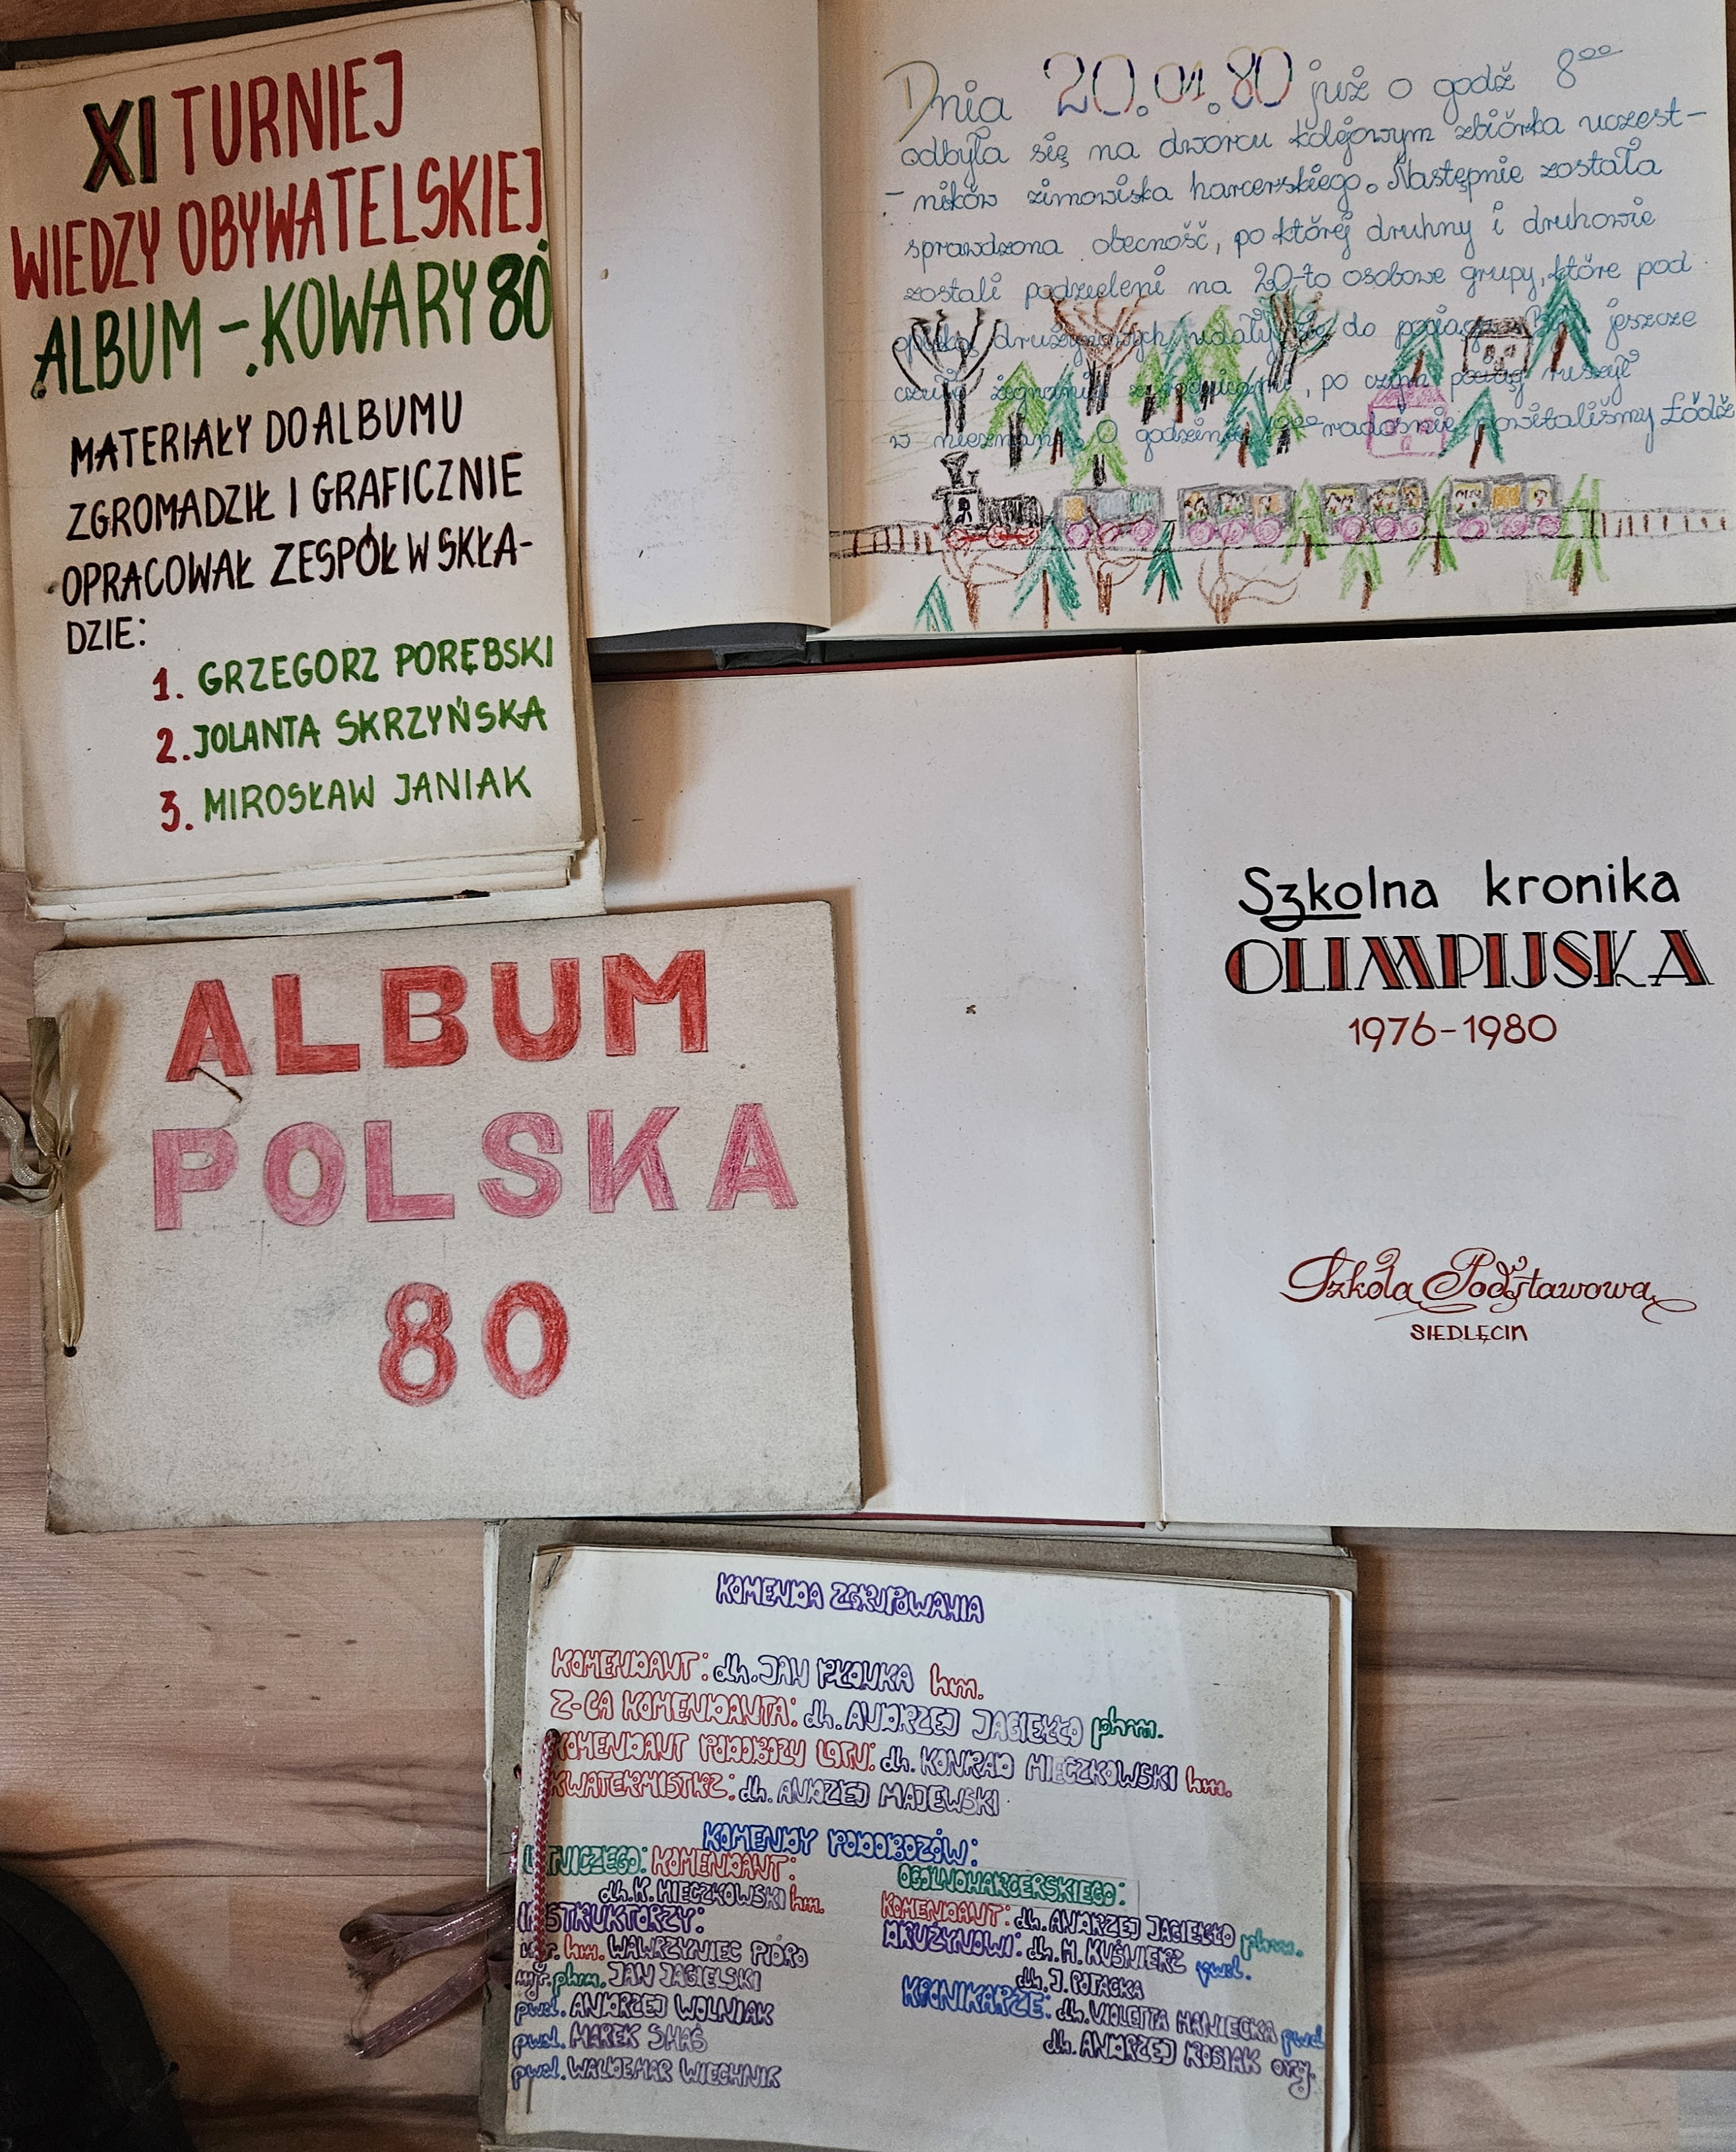 XI TURNIEJ
WIEDZY OBYWATELSKIEJ
ALBUM - KOWARY 80
MATERIAŁY DO ALBUMU
ZGROMADZIŁ I GRAFICZNIE
OPRACOWAŁ ZESPÓŁ W SKŁA-
DZIE:
1. GRZEGORZ PORĘBSKI
2. JOLANTA SKRZYŃSKA
3. MIROSŁAW JANIAK
Dnia 20.01.80 już o godź 8⁰⁰
odbyła się na dworcu kolejowym zbiórka uczest-
-ników zimowiska harcerskiego. Następnie została
sprawdzona obecność, po której druhny i druhowie
zostali podzieleni na 20-to osobowe grupy, które pod
opieką drużynowych udały się do pociągu. jeszcze
czułe żegnanie z rodzicami, po czym pociąg ruszył
w nieznane. O godzinie radośnie powitaliśmy Łódź
ALBUM
POLSKA
80
Szkolna kronika
OLIMPIJSKA
1976-1980
Szkoła Podstawowa
SIEDLĘCIN
KOMENDA ZGRUPOWANIA
KOMENDANT: dh. JAN PŁONKA hm.
Z-CA KOMENDANTA: dh. ANDRZEJ JAGIEŁŁO phm.
KOMENDANT PODOBOZU LOTN.: dh. KONRAD MIECZKOWSKI hm.
KWATERMISTRZ: dh. ANDRZEJ MAJEWSKI
KOMENDY PODOBOZÓW:
LOTNICZEGO: KOMENDANT:
dh. K. MIECZKOWSKI hm.
INSTRUKTORZY:
hm. WAWRZYNIEC PIÓRO
mjr. phm. JAN JAGIELSKI
pwd. ANDRZEJ WOLNIAK
pwd. MAREK SMAŚ
pwd. WALDEMAR WIECHNIK
OGÓLNOHARCERSKIEGO:
KOMENDANT: dh. ANDRZEJ JAGIEŁŁO phm.
DRUŻYNOWI: dh. M. KUŚNIERZ pwd.
dh. J. POTACKA
KRONIKARZE: dh. VIOLETTA MANIECKA pwd
dh. ANDRZEJ KOSIAK org.